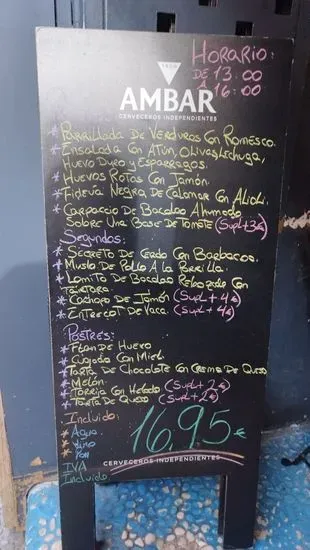 AMBAR
CERVECEROS INDEPENDIENTES
HORARIO:
DE 13:00
A 16:00
* PARRILLADA DE VERDURAS CON ROMESCO.
* ENSALADA CON ATÚN, OLIVAS, LECHUGA,
HUEVO DURO Y ESPARRAGOS.
* HUEVOS ROTOS CON JAMÓN.
* FIDEVA NEGRA DE CALAMAR CON ALIOLI.
* CARPACCIO DE BACALAO AHUMADO
SOBRE UNA BASE DE TOMATE (SUPL+3€)
SEGUNDOS:
* SECRETO DE CERDO CON BARBACOA.
* MUSLO DE POLLO A LA PARRILLA.
* LOMITO DE BACALAO REBOZADO CON
TÁRTARA.
* CACHOPO DE JAMÓN (SUPL + 4€)
* ENTRECOT DE VACA. (SUPL + 4€)
POSTRES:
* FLAN DE HUEVO
* CUAJADA CON MIEL.
* TARTA DE CHOCOLATE CON CREMA DE QUESO
* MELÓN.
* TORRIJA CON HELADO (SUPL+2€)
* TARTA DE QUESO (SUPL+2€)
INCLUIDO:
* AGUA
* VINO
* PAN
IVA
INCLUIDO.
16,95€
CERVECEROS INDEPENDIENTES